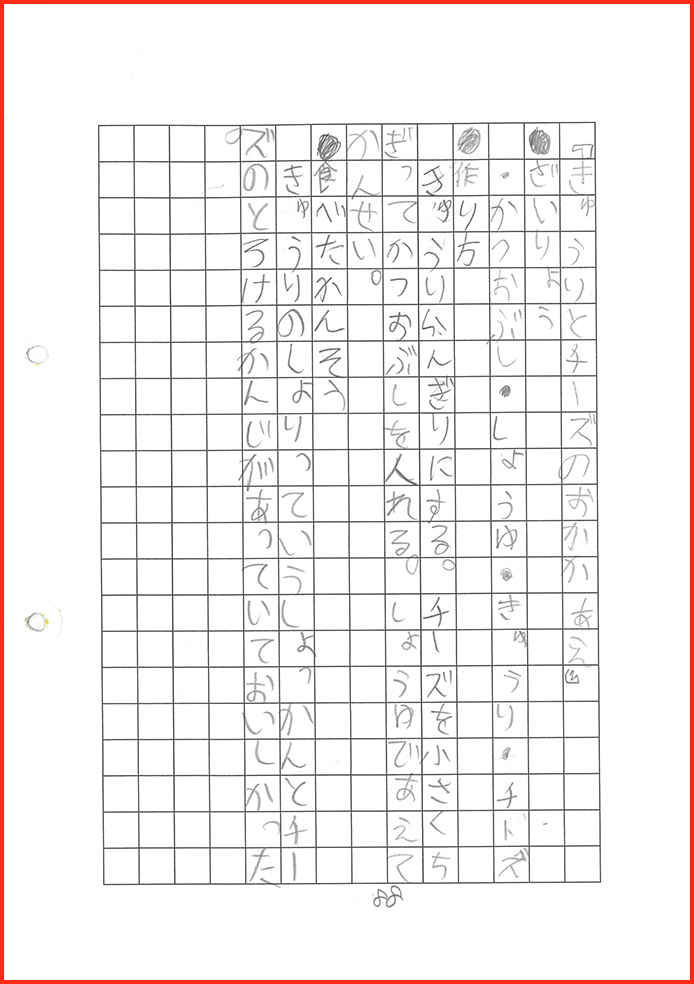 「きゅうりとチーズのおかかあえ」
●ざいりょう
・かつおぶし・しょうゆ・きゅうり・チーズ
●作り方
きゅうりらんぎりにする。チーズを小さくち
ぎってかつおぶしを人れる。しょうゆであえて
かんせい。
●食べたかんそう
きゅうりのしょりっていうしょっかんとチー
ズのとろけるかんじがあっていておいしかった
。
88